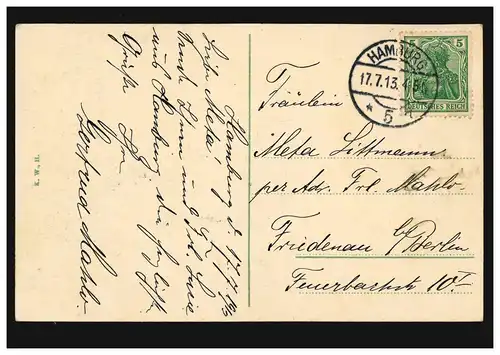 Hamburg d. 17.7.1913
Liebe Meta!
Tante Linna und Frl. Luise
aus Hamburg die herzlichsten
Grüße Ihre
Gertrud Mahlo.
K. W. H.
HAMBURG
17.7.13.
* 5
5
DEUTSCHES REICH
Fräulein
Meta Littmann
per Adr. Frl. Mahlo
Friedenau b/Berlin
Feuerbachstr 10